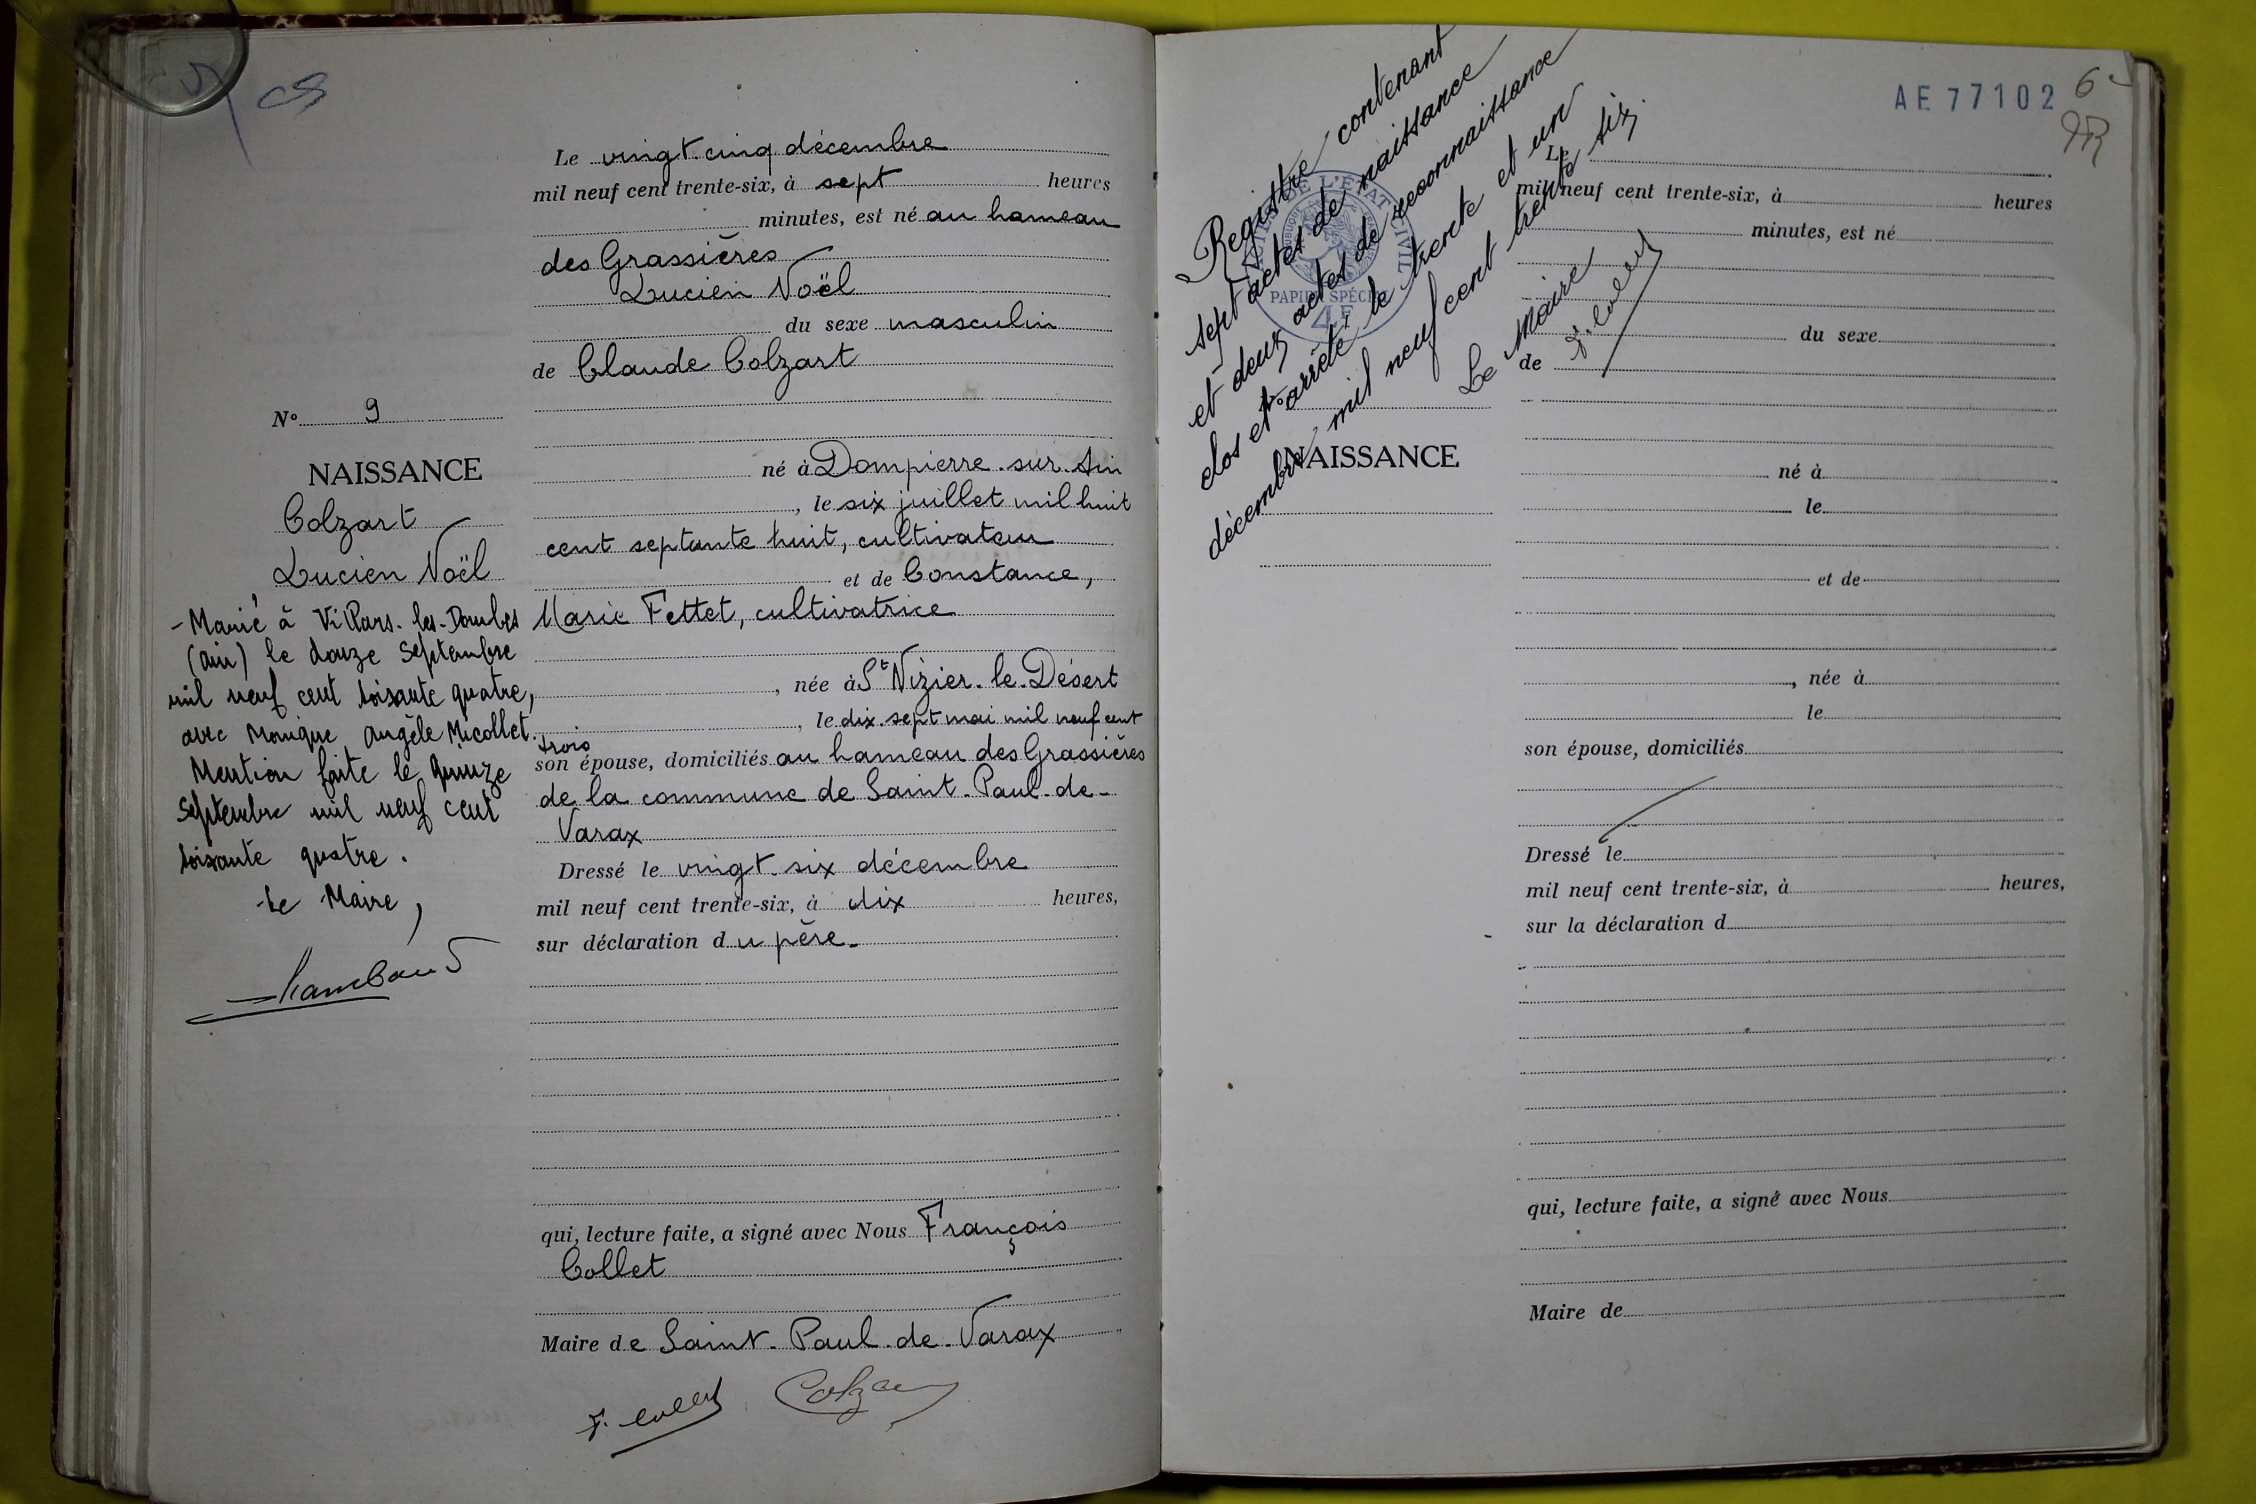 Le vingt-cinq décembre
mil neuf cent trente-six, à sept heures
minutes, est né au hameau
des Grassières
Lucien Noël
du sexe masculin
de Claude Colzart
N° 9
NAISSANCE
Colzart
Lucien Noël
né à Dompierre-sur-Ain
, le six juillet mil huit
cent septante huit, cultivateur
et de Constance,
Marie Fettet, cultivatrice
, née à St Nizier-le-Désert
, le dix-sept mai mil neuf cent
trois
son épouse, domiciliés au hameau des Grassières
de la commune de Saint-Paul-de-
Varax
Dressé le vingt-six décembre
mil neuf cent trente-six, à dix heures,
sur déclaration du père.
qui, lecture faite, a signé avec Nous François
Collet
Maire de Saint-Paul-de-Varax
F. Collet
- Marié à Villars-les-Dombes
(Ain) le douze Septembre
mil neuf cent soixante quatre,
avec Monique Angèle Micollet.
Mention faite le quinze
Septembre mil neuf cent
soixante quatre.
Le Maire,
AE 77102
6
Registre contenant
sept actes de naissance
et deux actes de reconnaissance
clos et arrêté le trente et un
décembre mil neuf cent trente six.
Le Maire
F. Collet
PAPIER SPÉCIAL
DE L'ETAT CIVIL
4F
N°
NAISSANCE
Le
mil neuf cent trente-six, à heures
minutes, est né
du sexe
de
né à
le
et de
, née à
le
son épouse, domiciliés
Dressé le
mil neuf cent trente-six, à heures,
sur la déclaration d
qui, lecture faite, a signé avec Nous
Maire de